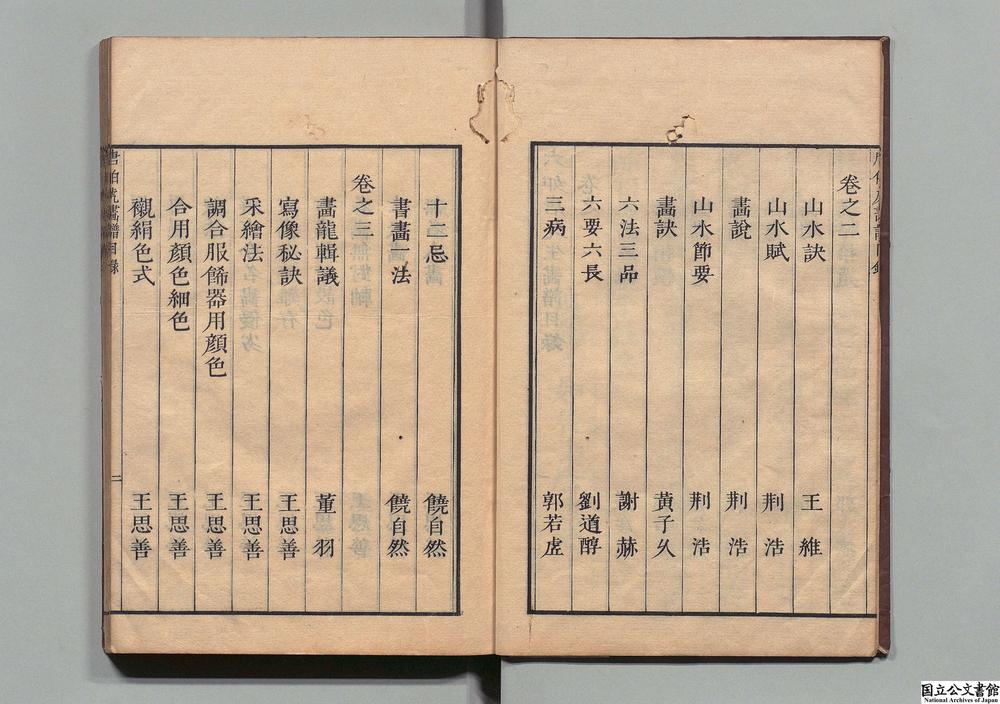 卷之二
山水訣 王維
山水賦 荆浩
畫說 荆浩
山水節要 荆浩
畫訣 黃子久
六法三品 謝赫
六要六長 劉道醇
三病 郭若虛
十二忌 饒自然
書畫一法 饒自然
卷之三
畫龍輯議 董羽
寫像秘訣 王思善
采繪法 王思善
調合服飾器用顏色 王思善
合用顏色細色 王思善
襯絹色式 王思善
唐伯虎畫譜目錄
二
国立公文書館
National Archives of Japan